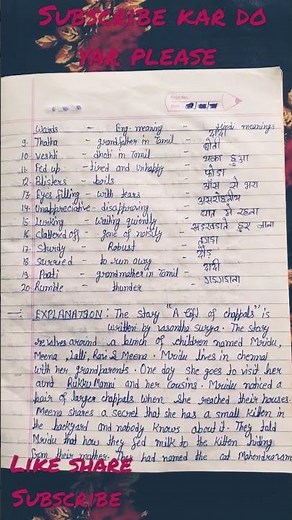 SUBSCRIBE KAR DO
YAR PLEASE
Words - Eng. meaning - Hindi meanings
9. Thatha - grandfather in Tamil - दादा
10. Veshti - dhoti in Tamil - धोती
11. Fed up - tired and unhappy - थका हुआ
12. Blisters - boils - फोड़ा
13. Eyes filling - with tears - आँख से भरा
14. Unappreciative - disapproving
15. Lurking - waiting quietly - घात में रहना
16. Clattered off - gone off noisily -
17. Sturdy - Robust - तगड़ा
18. Scurried - to run away - दौड़
19. Paati - grandmother in Tamil - दादी
20. Rumble - thunder - गड़गड़ाना
EXPLANATION: The story "A Gift of chappals" is
written by Vasantha Surya. The story
revolves around a bunch of children named Mridu,
Meena, Lalli, Ravi & Meena. Mridu lives in chennai
with her grandparents. One day she goes to visit her
aunt Rukku Manni and her cousins. Mridu noticed a
pair of larger chappals when she reached their houses.
Meena shares a secret that she has a small kitten in
the backyard and nobody knows about it. They told
Mridu that how they fed milk to the kitten hiding
from their mother. They had named the cat Mahendravarm
LIKE SHARE
SUBSCRIBE